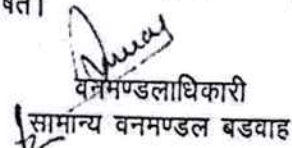 षत।
वनमण्डलाधिकारी
सामान्य वनमण्डल बडवाह